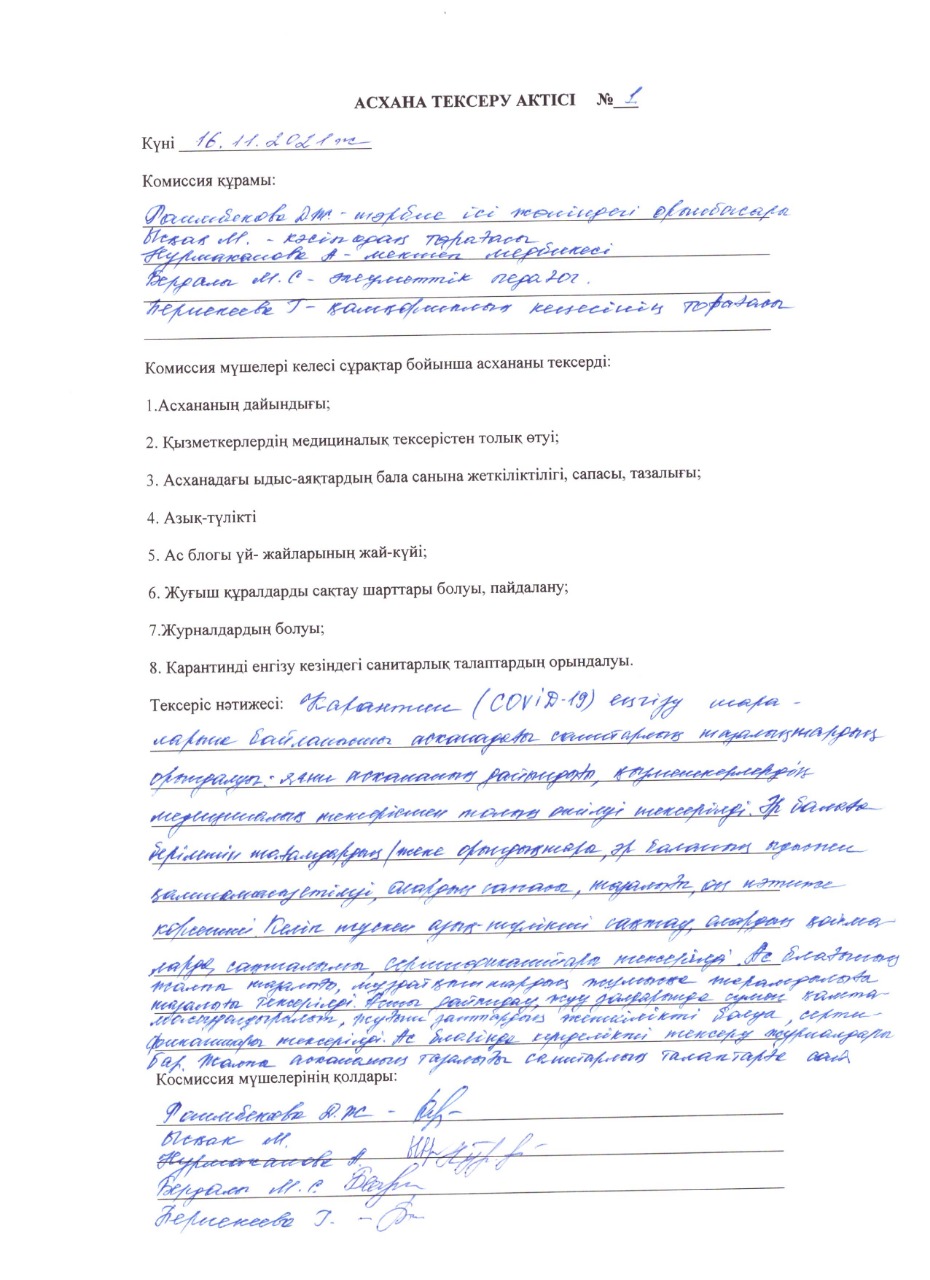 АСХАНА ТЕКСЕРУ АКТІСІ №1
Күні 16.11.2021ж
Комиссия құрамы:
Раимбекова Д.Ж - тәрбие ісі жөніндегі орынбасары
Ысқақ М. - кәсіподақ төрағасы
Нурмаканова А - мектеп медбикесі
Бердалы М.С - әлеуметтік педагог.
Берикеева Г - қамқоршылық кеңесінің төрағасы
Комиссия мүшелері келесі сұрақтар бойынша асхананы тексерді:
1.Асхананың дайындығы;
2. Қызметкерлердің медициналық тексерістен толық өтуі;
3. Асханадағы ыдыс-аяқтардың бала санына жеткіліктілігі, сапасы, тазалығы;
4. Азық-түлікті
5. Ас блогы үй- жайларының жай-күйі;
6. Жуғыш құралдарды сақтау шарттары болуы, пайдалану;
7.Журналдардың болуы;
8. Карантинді енгізу кезіндегі санитарлық талаптардың орындалуы.
Тексеріс нәтижесі: Карантин (COViD-19) енгізу шара-
ларына байланысты асханадағы санитарлық тазалықтардың
орындалуы: яғни асхананың дайындығы, қызметкерлердің
медициналық тексерістен толық өткізілді тексерілді. Әр балаға
берілетін тағамдардың /жеке орындықтары, әр баланың ыдыспен
қамтамасыз етілуі, олардың сапасы, тазалығы, оң нәтиже
көрсетті. Келіп түскен азық-түлікті сақтау, олардың қойма
ларда сақталымы, сертификаттары тексерілді. Ас блогының
жалпы тазалығы, мұздатқыштардың жұмысқа жарамдылығы
тазалығы тексерілді. Асты дайындау, жуу залдарында сумен қамта-
масыздандырылып, жуғыш заттардың жеткілікті болуы, серти-
фикаттары тексерілді. Ас блогінде күнделікті тексеру журналдары
бар. Жалпы асхананың тазалығы санитарлық талаптарға сай
Космиссия мүшелерінің қолдары:
Раимбекова Д.Ж -
Ысқақ М.
Нурмаканова А.
Бердалы М.С.
Берикеева Г. -